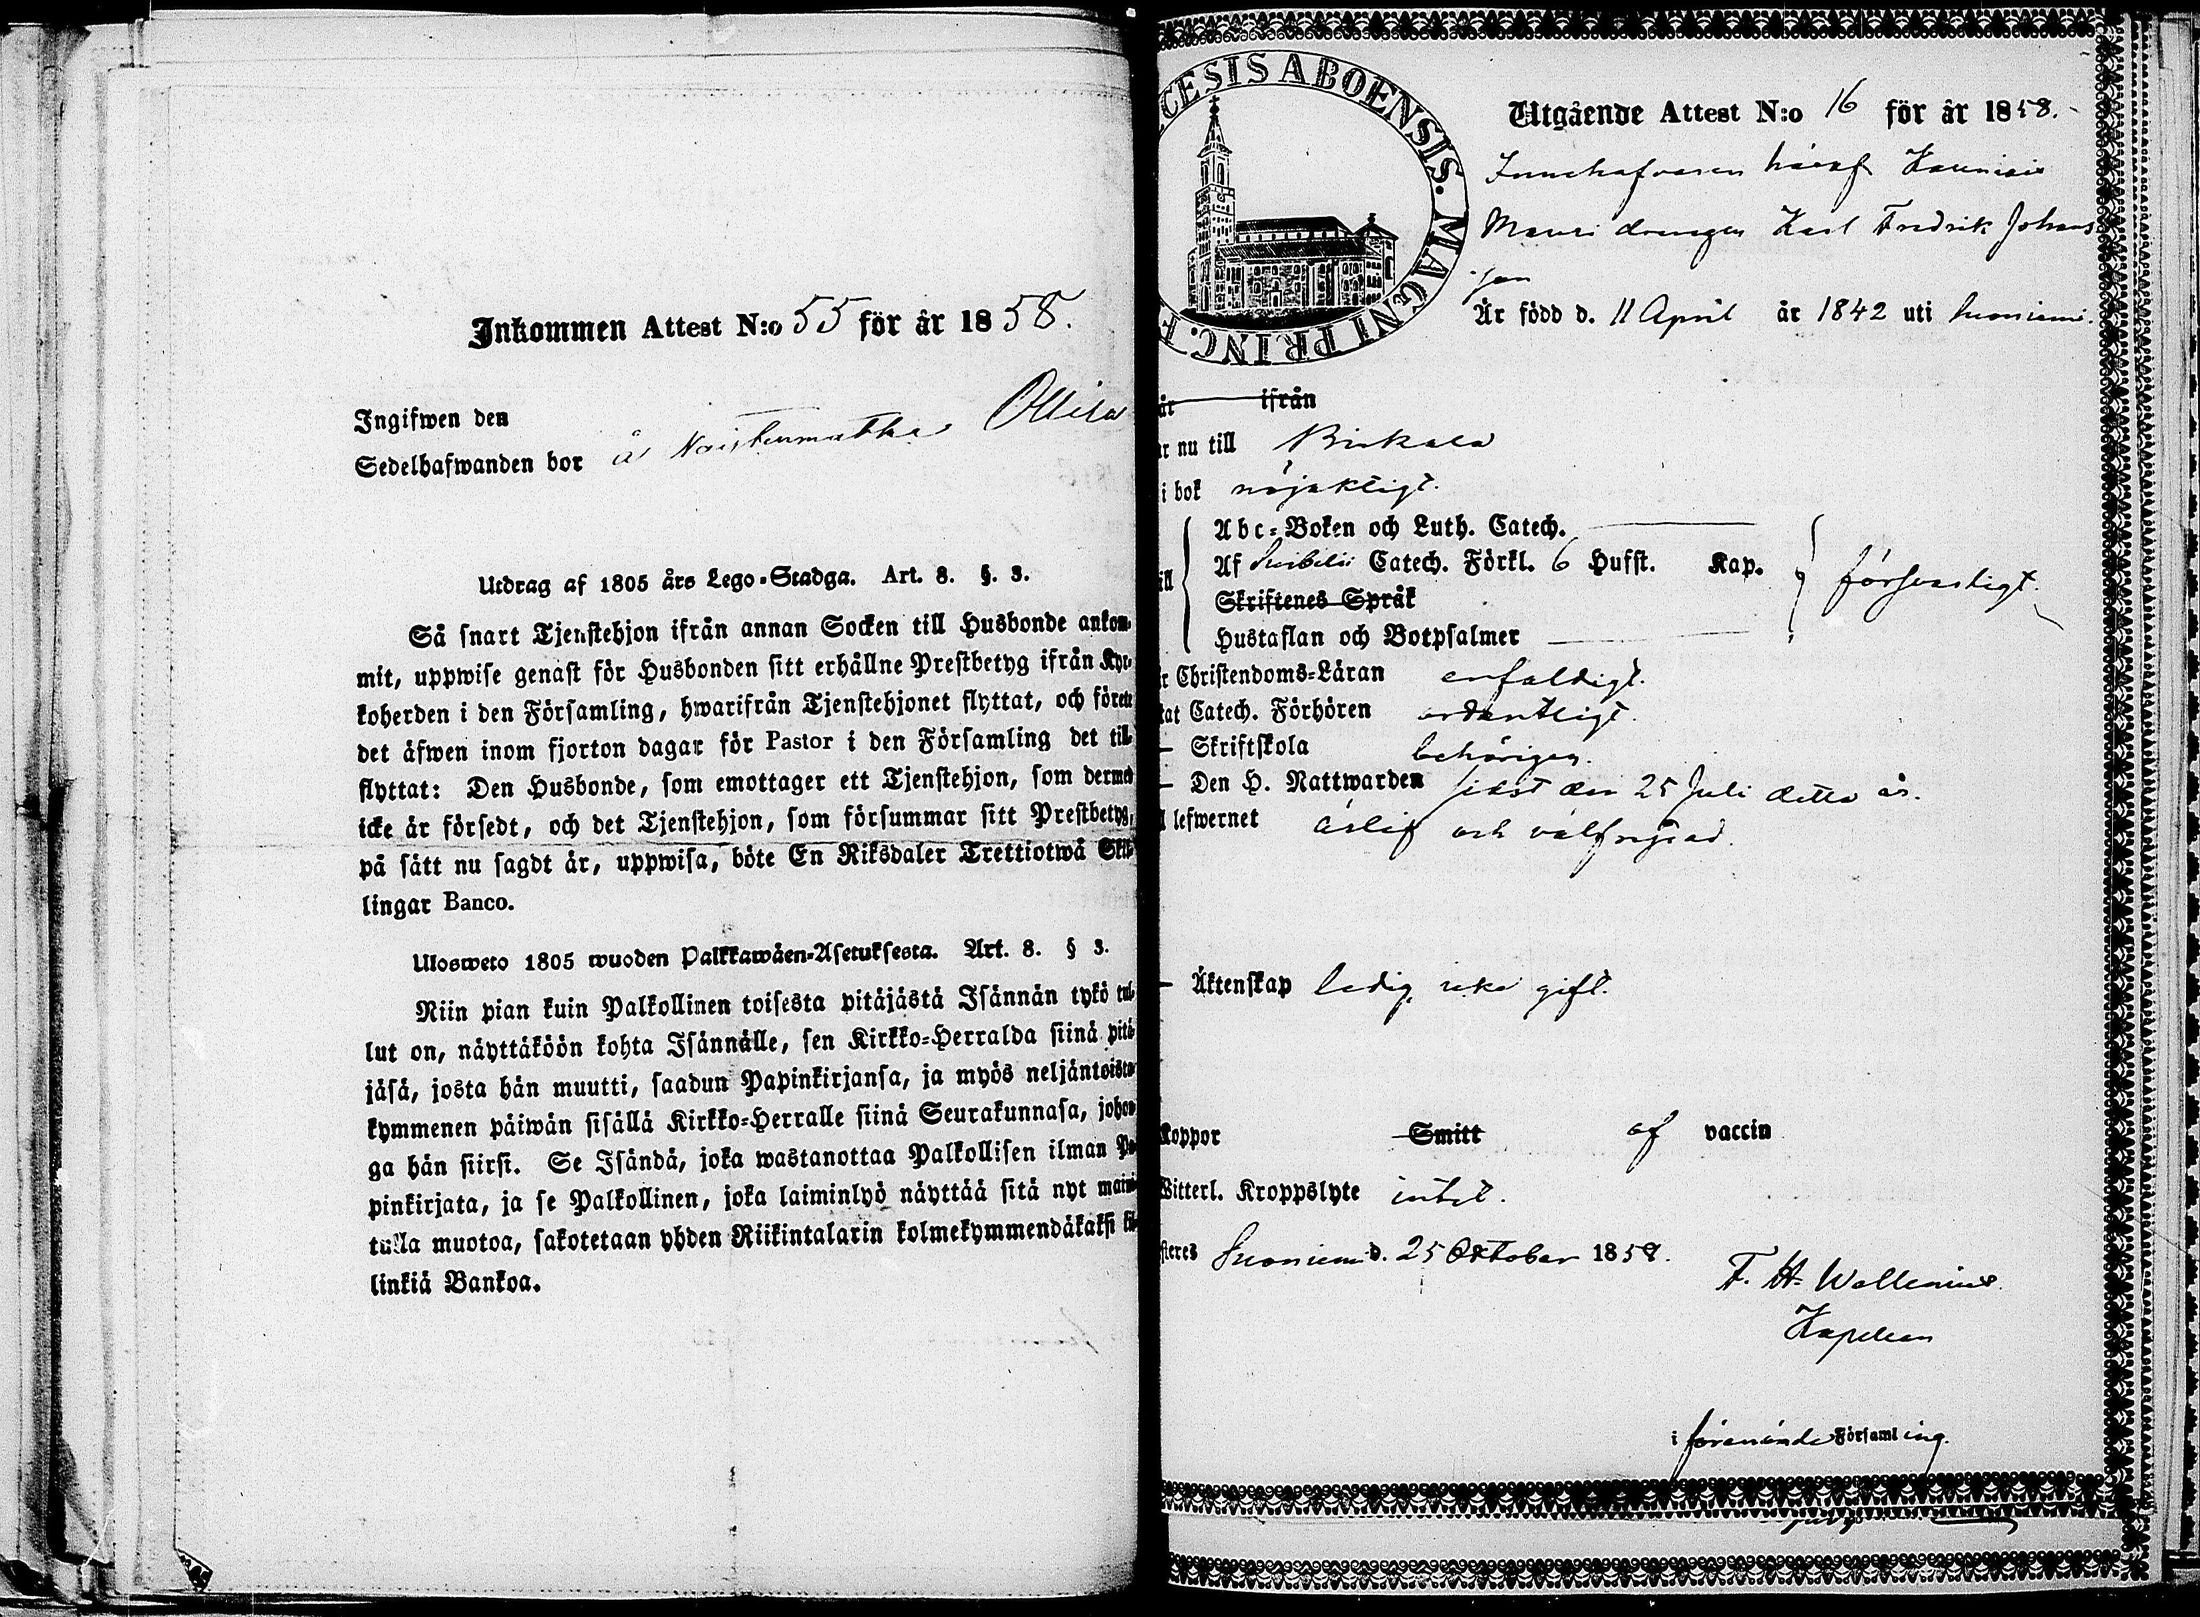 Inkommen Attest N:o 55 för år 1858.
Ingifwen den
Sedelhafwanden bor å Naistenmatka Ollila
Utdrag af 1805 års Lego-Stadga. Art. 8. §. 3.
Så snart Tjenstehjon ifrån annan Socken till Husbonde ankom-
mit, uppwise genast för Husbonden sitt erhållne Prestbetyg ifrån Kyr-
koherden i den Församling, hwarifrån Tjenstehjonet flyttat, och förete
det äfwen inom fjorton dagar för Pastor i den Församling det till-
flyttat: Den Husbonde, som emottager ett Tjenstehjon, som dermed
icke är försedt, och det Tjenstehjon, som försummar sitt Prestbetyg,
på sätt nu sagdt är, uppwisa, böte En Riksdaler Trettiotwå Skil-
lingar Banco.
Ulosweto 1805 wuoden Palkkawäen-Asetuksesta. Art. 8. § 3.
Niin pian kuin Palkollinen toisesta pitäjästä Isännän tykö tul-
lut on, näyttäköön kohta Isännälle, sen Kirkko-Herralda siinä pitä-
jäsä, josta hän muutti, saadun Papinkirjansa, ja myös neljäntoista
kymmenen päiwän sisällä Kirkko-Herralle siinä Seurakunnasa, johon-
ga hän siirsi. Se Isändä, joka wastanottaa Palkollisen ilman Pa-
pinkirjata, ja se Palkollinen, joka laiminlyö näyttää sitä nyt maini-
tulla muotoa, sakotetaan yhden Riikintalarin kolmekymmendäkaksi kil-
linkiä Bankoa.
CESIS ABOENSIS. MAGNI PRINC. F
Utgående Attest N:o 16 för år 1858.
Innehafvaren häraf Kauniais
Mauri drengen Karl Fredrik Johans
son
Är född d. 11 April år 1842 uti Suoniemi.
är ifrån
ar nu till Birkala
i bok nöjaktigt.
Abc-Boken och Luth. Catech.
Af Svebilii Catech. Förkl. 6 Hufst. Kap. försvarligt.
Skriftenes Språk
Hustaflan och Botpsalmer
r Christendoms-Läran enfaldigt.
tat Catech. Förhören ordentligt.
– Skriftskola behörigen.
– Den H. Nattwarden sidst den 25 Juli detta år.
l lefwernet ärlig och välfrejdad.
– Äktenskap ledig, icke gift.
Koppor Smitt af vaccin
Witterl. Kroppslyte intet.
steres Suoniemi d. 25 Oktober 1858.
F. H. Wallenius.
Kapellan
i förenämnde Församling.